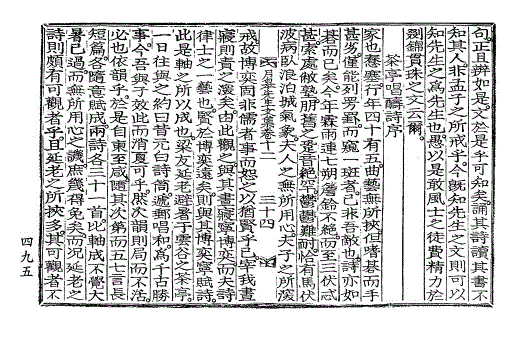 句。正且辦如是。文於是乎可知矣。誦其詩讀其書不
知其人。非孟子之所戒乎。今旣知先生之文則可以
知先生之爲先生也。愚以是敢風士之徒費精力於
劉錦貫珠之文云爾。
茶亭唱酬詩序
家也。卷塞行年四十有五曲藝無所挾。但嗜碁而手
甚劣。僅能列勞罫而窺一斑者。已非吾敵也。詩亦如
碁而已矣。今年霖雨連七朔簷鈴不絶。而至三伏忒
甚。索處敝塾朋舊之跫音絶罕。鬱鬱難耐恰有馬伏
波病臥浪泊城氣象。夫人之無所用心。夫子之所深
月皐先生文集卷十二 三十四
戒。故博奕固非儒者事而恕之以猶賢乎已。宰我晝
寢則責之深矣。由此觀之與其晝寢寧博奕。而夫詩
律士之一藝也。賢於博奕遠矣。則與其博奕寧賦詩。
此是軸之所以成也。梁友延老避暑于雲谷之茶亭。
一日往與之約曰。昔元白詩筒遞郵唱和。爲千古勝
事。今吾與子效此而消夏可乎。然次韻則局而不活。
必也依韻乎。於是自東至咸隨其次第而五七言長
短篇。各隨意賦成兩詩各三十一首。比軸成不覺大
暑已過而無所用心之譏。庶幾得免矣。而況延老之
詩則頗有可觀者乎。且延老之所挾多。其可觀者不
四九五